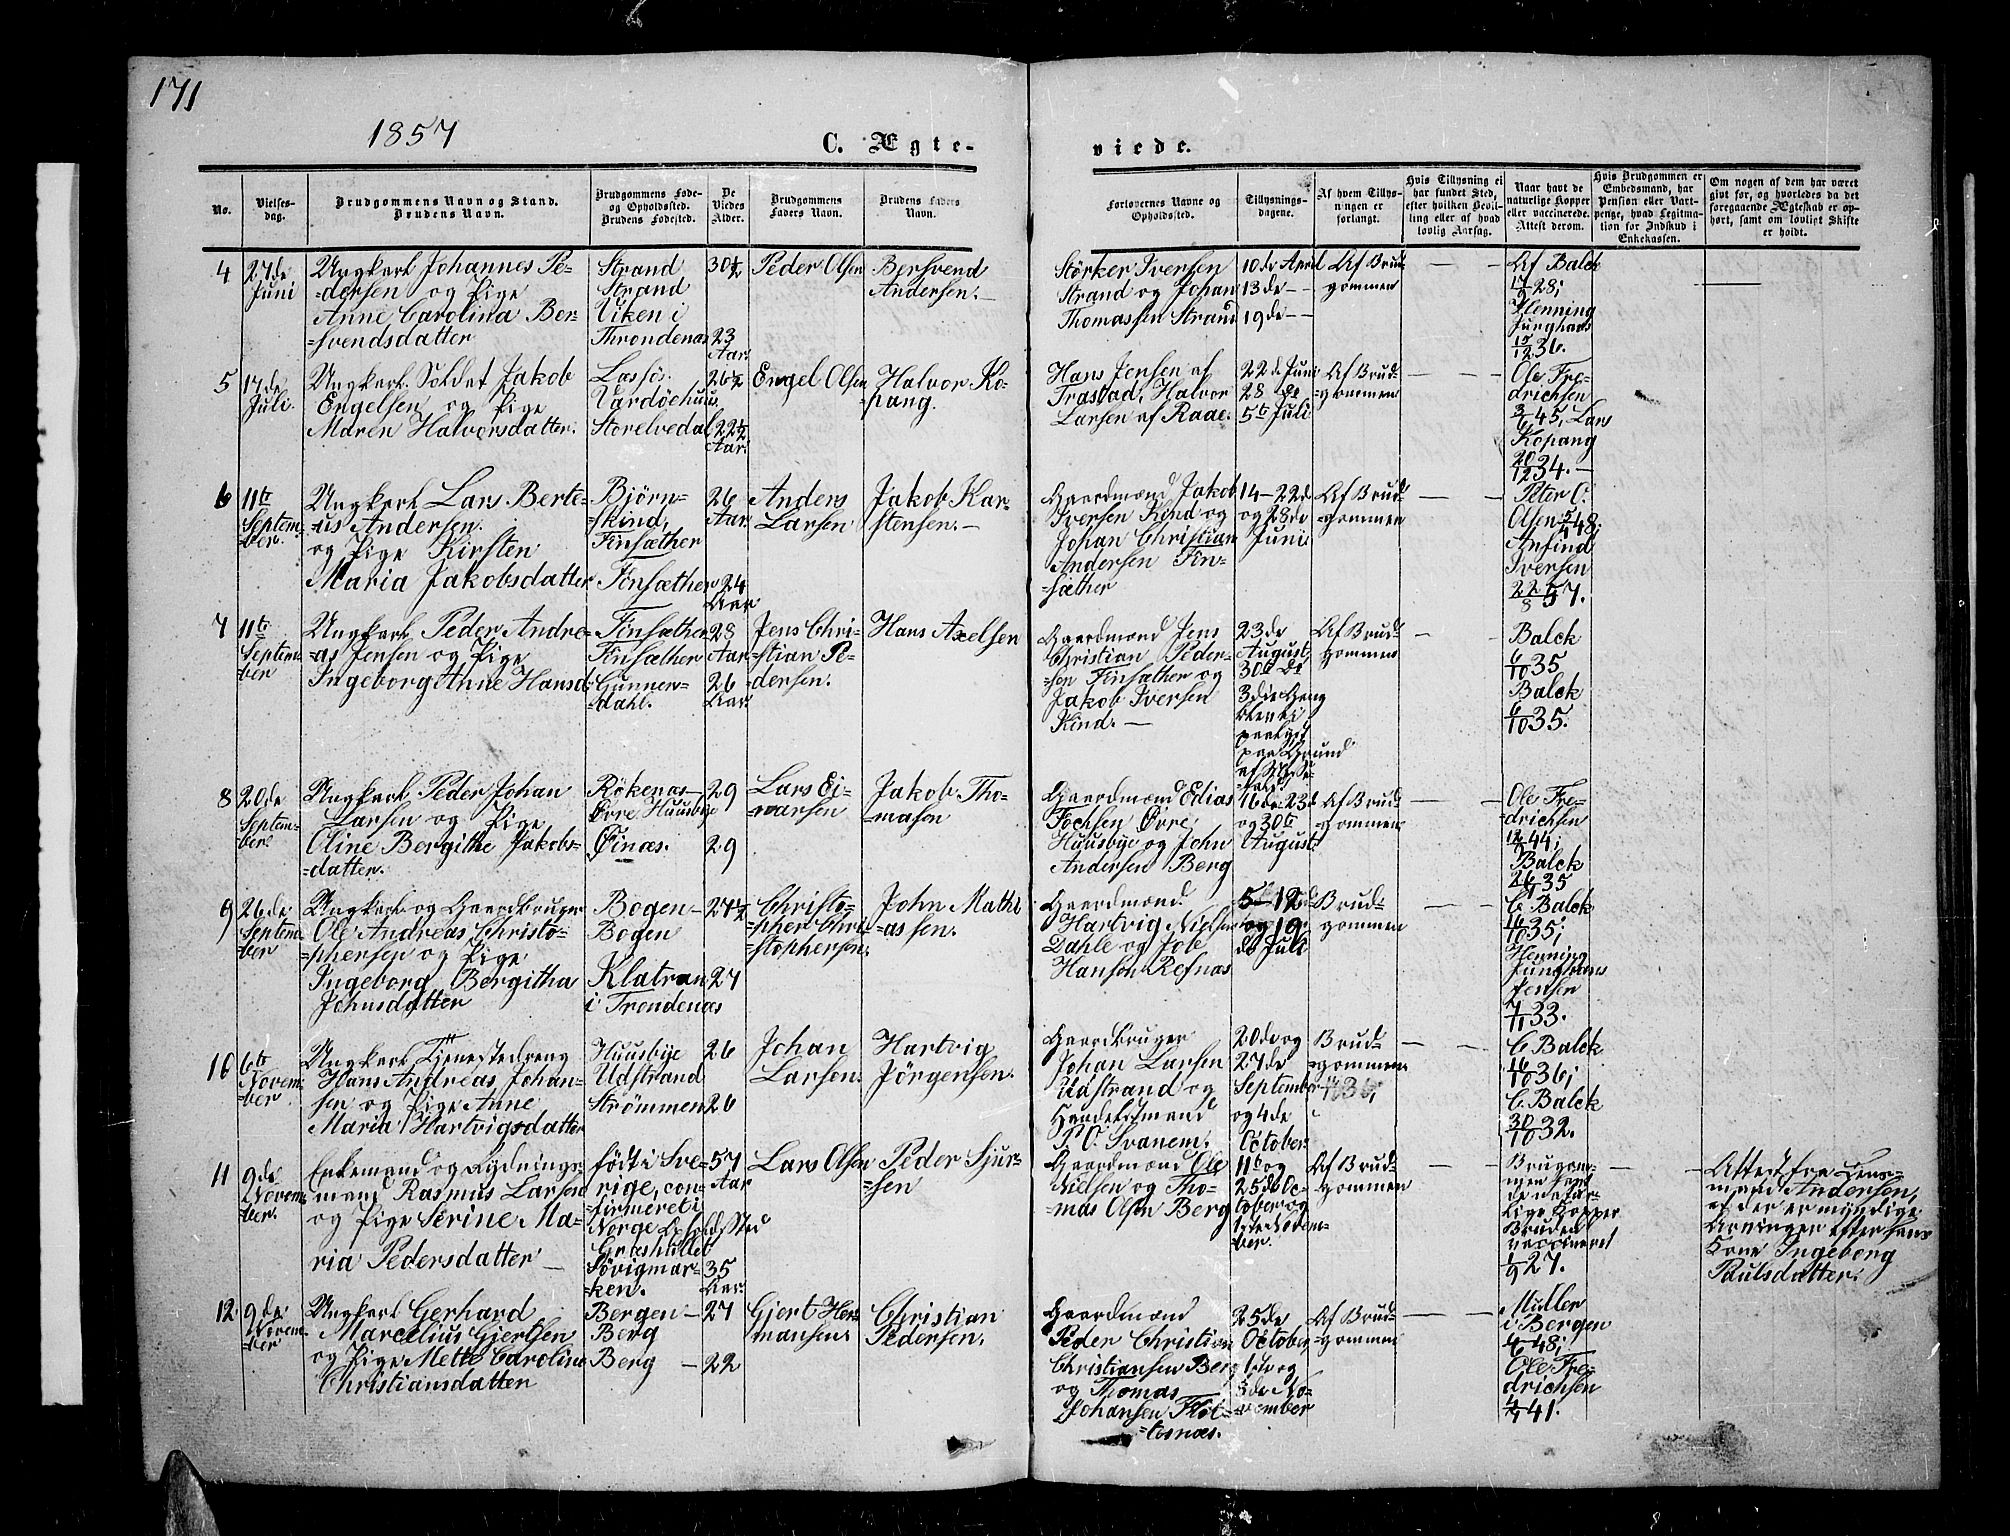 171
1857
C. Ægte-
viede.
No.
Vielses-
dag.
Brudgommens Navn og Stand.
Brudens Navn.
Brudgommens Føde-
og Opholdssted.
Brudens Fødested.
De
Viedes
Alder.
Brudgommens
Faders Navn.
Brudens Faders
Navn.
Forlovernes Navne og
Opholdssted.
Tillysnings-
dagene.
Af hvem Tillys-
ningen er
forlangt.
Hvis Tillysning ei
har fundet Sted,
efter hvilken Bevil-
ling eller af hvad
lovlig Aarsag.
Naar havt de
naturlige Kopper
eller vaccinerede.
Attest derom.
Hvis Brudgommen er
Embedsmand, har
Pension eller Vart-
penge, hvad Legitima-
tion for Indskud i
Enkekassen.
Om nogen af dem har været
gift før, og hvorledes da det
foregaaende Ægteskab er op-
hørt, samt om lovligt Skifte
er holdt.
4
27de
Juni
Ungkarl Johannes Pe-
=dersen og Pige
Anne Carolina Ber-
=svendsdatter
Strand
Strand
Viken i
Throndenæs
30½
23
Aar.
Peder Olsen
Bersvend
Andersen.
Størker Iversen
Strand og Johan
Thomassen Strand
10de April
13de - -
19de - -
Af Brud-
gommen
Af Balck
17/9 28;
Henning
Junghans
15/12 36.
5
17de
Juli.
Ungkarl. Soldat Jakob
Engelsen og Pige
Maren Halvorsdatter.
Løssjø.
Vardøehuus.
Storelvedal
26½
22½
Aar.
Engel Olsen
Halvor Ko-
pang.
Hans Jensen af
Trastad, Halvor
Larsen af Raae.
22de Juni
28 de
5te Juli
Af Brud-
=gommen
Ole Fre-
drichsen
3/6 45, Lars
Kopang
20/12 34.
6
11te
Septem-
ber.
Ungkarl Lars Berte-
us Andersen.
og Pige Kirsten
Maria Jakobsdatter
Bjørn-
=skind,
Finsæther
Finsæther
26
Aar.
24
Aar
Anders
Larsen
Jakob Kar-
stensen.
Gaardmænd Jakob
Iversen Kind og
Johan Christian
Andersen Fin-
=sæther
14-22de
og 28de
Juni
Af Brud-
=gommen
Peter O.
Olsen 5/7 48;
Anfind
Iversen
22/8 57.
7
11te
Septem-
ber
Ungkarl Peder Andre-
=as Jensen og Pige
Ingeborg Anne Hansd.
Finsæther
Finsæther
Gunnen-
dahl.
28
Aar
26
Aar.
Jens Chri-
=stian Pe-
dersen.
Hans Axelsen
Gaardmænd Jens
Christian Peder-
=sen Finsæther og
Jakob Iversen
Kind.
23de
August,
30te de
3die Gang
blev ei
paalyst
paa Grund
af Messe-
fald
Af Brud-
gommen
Balck
6/10 35
Balck
6/10 35.
8
20de
Septem-
ber
Ungkarl Peder Johan
Larsen og Pige
Oline Bergithe Jakobs-
=datter.
Røkenæs
Øvre Huusbye
Øinæs.
29
29
Lars Ei-
=varsen
Jakob Tho-
=masen
Gaardmænd Edias
Fochsen Øvre
Huusbye og John
Andersen Berg
16de-23d
og 30te
August
Af Brud-
=gommen
Ole Fre-
drichsen
44;
Balck
35
9
26de
Septem-
ber
Ungkarl og Gaardbruger
Ole Andreas Christo-
=phersen og Pige
Ingeborg Bergitha
Johnsdatter
Bogen
Bogen
Klatran
i Trondenæs
27½
27
Christo-
=pher Chri-
=stophersen.
John Mathi-
=assen.
Gaardmænd.
Hartvig Nielsen
Dahle og Job
Hanson Refnæs
5-12de
og 19
de Juli
Brud-
gommen
C. Balck
16/10 35;
Henning
Junghans
Jensen
7/11 33.
10
6te
Novem-
ber
Ungkarl Tjenestedreng
Hans Andreas Johan-
sen og Pige Anne
Maria Hartvigsdatter
Huusbye
Udstrand
Strømmen
26
26
Johan
Larsen.
Hartvig
Jørgensen.
Gaardbruger
Johan Larsen
Udstrand og
Handelsmand
P. O. Svanem.
20de og
27de
September
og 4de
October.
Brud-
gommen
C. Balck
16/10 36;
C. Balck
30/10 32.
11
9de
Novem-
ber.
Enkemand og Rydnings-
mand Rasmus Larsen
og Pige Serine Ma-
ria Pedersdatter
født i Sve-
rige, con-
=firmeret i
Norge Opholdssted
Græshullet
Søvigmar-
ken.
57
Aar
35
Aar.
Lars Olsen
Peder Sjur-
=sen
Gaardmænd Ole
Nielsen og Tho-
mas Olsen Berg
11te og
25de Oc-
tober og
1ste Novem-
ber.
Af Brud-
gommen
Brudgom-
men havt
de natur-
lige Kopper
Bruden
vaccineret
1/9 27.
Attest fra Lens-
mand Andersen,
af der er myndige
Arvinger efter hans
Kone Ingeborg
Paulsdatter.
12
9de
Novem-
ber
Ungkarl Gerhard
Marcelius Gjertsen
og Pige Mette Caroline
Christiansdatter
Bergen
Berg
Berg
27
22
Gjert Her-
mansen.
Christian
Pedersen.
Gaardmænd
Peder Christian
Christiansen Berg
og Thomas
Johansen Flöt-
=tenæs.
25de
October,
1ste og
8de No-
vember
Af Brud-
gommen
Müller
i Bergen
4/6 48;
Ole Fre-
drichsen
4/7 41.